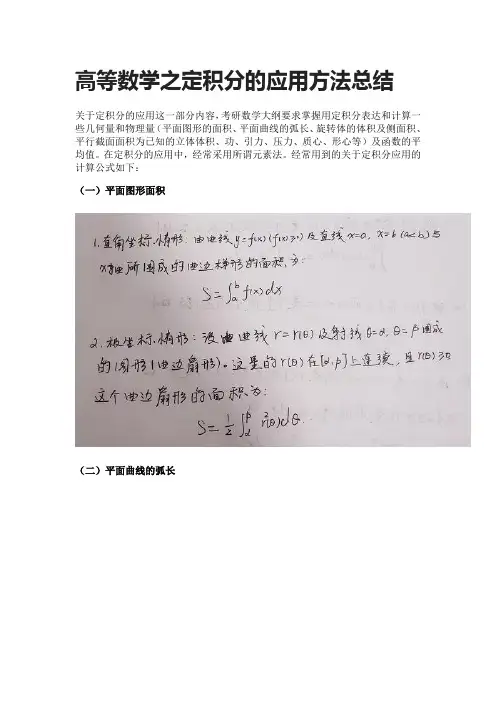 高等数学之定积分的应用方法总结
关于定积分的应用这一部分内容,考研数学大纲要求掌握用定积分表达和计算一
些几何量和物理量(平面图形的面积、平面曲线的弧长、旋转体的体积及侧面积、
平行截面面积为已知的立体体积、功、引力、压力、质心、形心等)及函数的平
均值。在定积分的应用中,经常采用所谓元素法。经常用到的关于定积分应用的
计算公式如下:
(一)平面图形面积
1.直角坐标情形: 由曲线 y=f(x) (f(x)≥0) 及直线 x=a, x=b (a<b) 与
x轴所围成的曲边梯形的面积为:
S=∫ₐᵇ f(x)dx
2.极坐标情形: 设由曲线 r=r(θ) 及射线 θ=α, θ=β 围成
的图形(曲边扇形)。这里的 r(θ) 在[α,β]上连续, 且 r(θ)≥0
这个曲边扇形的面积为:
S=½∫_α^β r²(θ)dθ.
(二)平面曲线的弧长